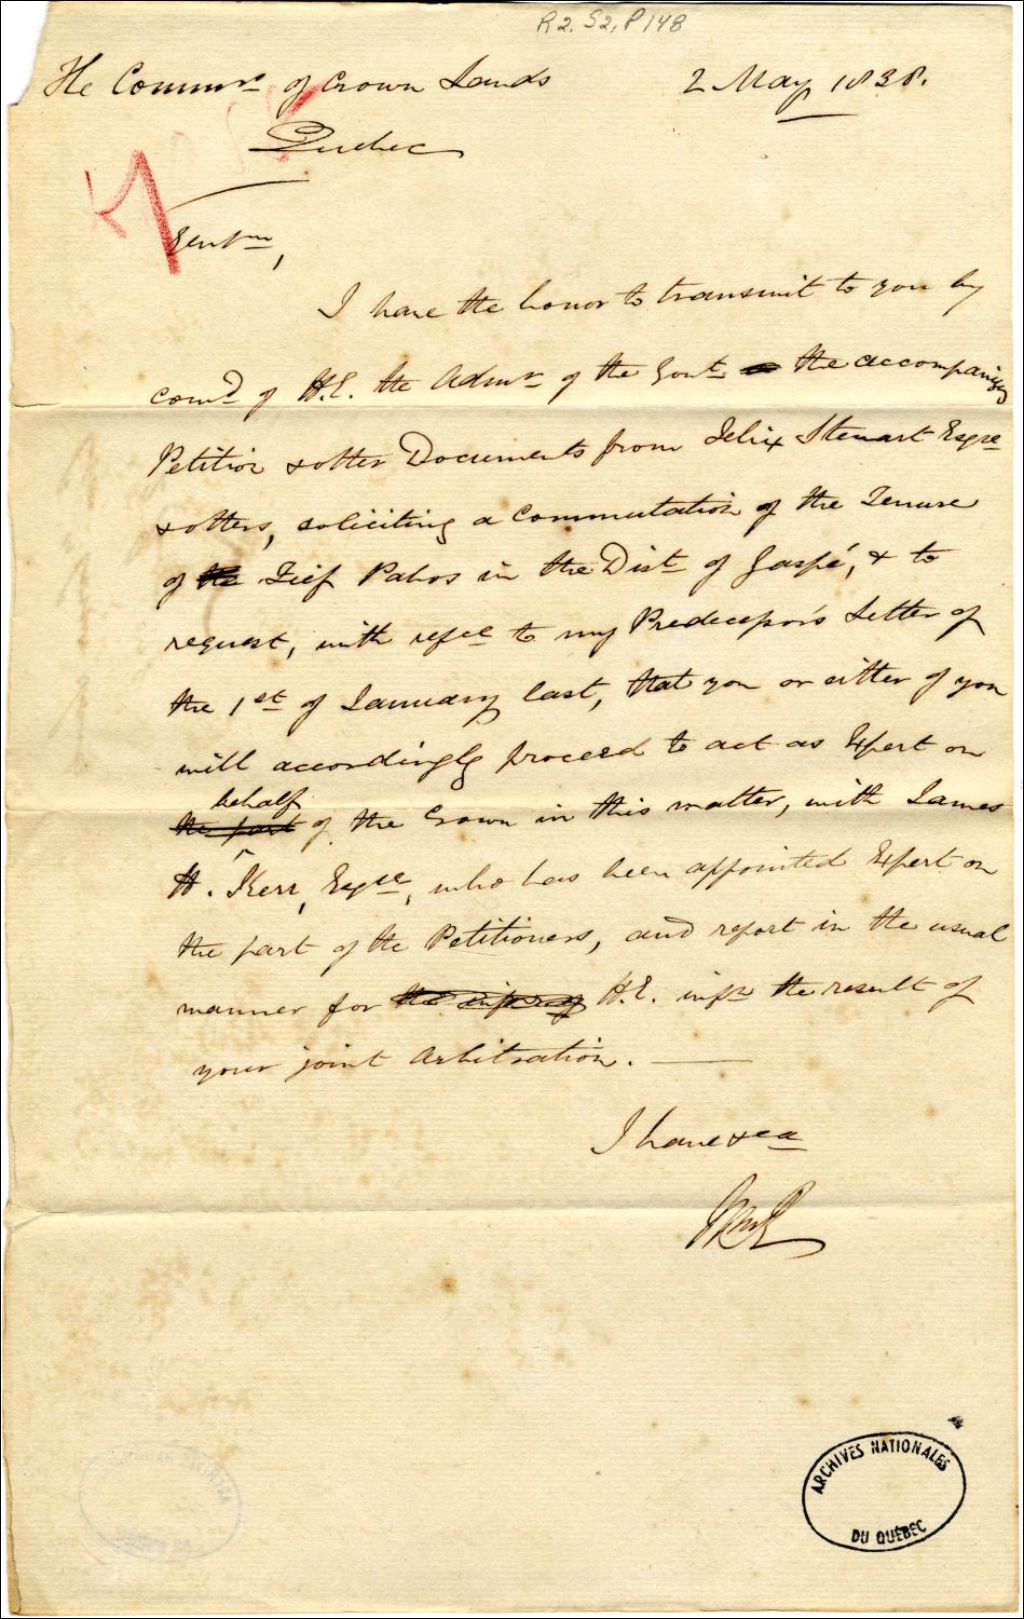 R2, S2, P148
The Commrs of Crown Lands 2 May 1838.
Quebec
Gentm,
I have the honor to transmit to you by
comd of H.E. the Admr of the Govt the accompanying
Petition & other Documents from Felix Stewart Esqre
& others, soliciting a Commutation of the Tenure
of the Fief Pabos in the Dist of Gaspé, & to
request, with refce to my Predecessor's Letter of
the 1st of January last, that you or either of you
will accordingly proceed to act as Expert on
behalf
the part of the Crown in this matter, with James
H. Kerr, Esqre, who has been appointed Expert on
the part of the Petitioners, and report in the usual
manner for the infor of H.E. infn the result of
your joint Arbitration.
I have &ca
ARCHIVES NATIONALES
DU QUÉBEC